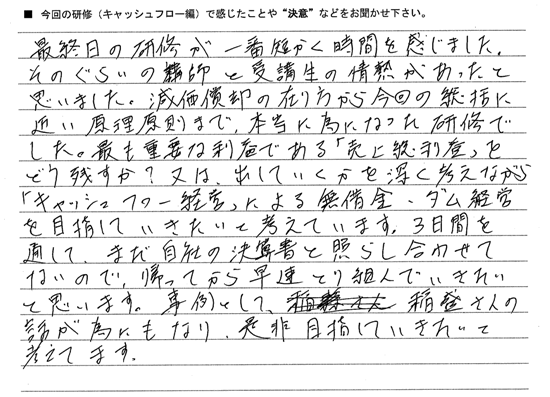 ■ 今回の研修（キャッシュフロー編）で感じたことや“決意”などをお聞かせ下さい。
最終日の研修が一番短かく時間を感じました。
そのぐらいの講師と受講生の情熱があったと
思いました。減価償却の在り方から今回の総括に
近い原理原則まで、本当に為になった研修で
した。最も重要な利益である「売上総利益」を
どう残すか？又は、出していくかを深く考えながら
「キャッシュフロー経営」による無借金、ダム経営
を目指していきたいと考えています。3日間を
通して、まだ自社の決算書と照らし合わせて
ないので、帰ってから早速とり組んでいきたい
と思います。事例として、稲盛さんの
話が為にもなり、是非目指していきたいと
考えてます。